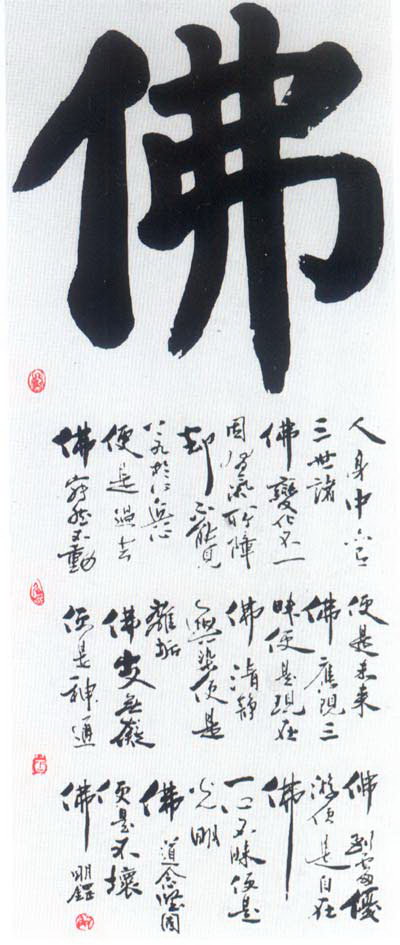 佛
人身中
三世諸
佛變化不一
因習氣所障
却不能見
心無心
便是過去
佛寂然不動
便是未来
佛應現三
昧便是現在
佛清静
無染便是
離垢
佛無礙
便是神通
佛到處優
游便是自在
佛
一心不昧便是
光明
佛道念堅固
便是不壞
佛
明